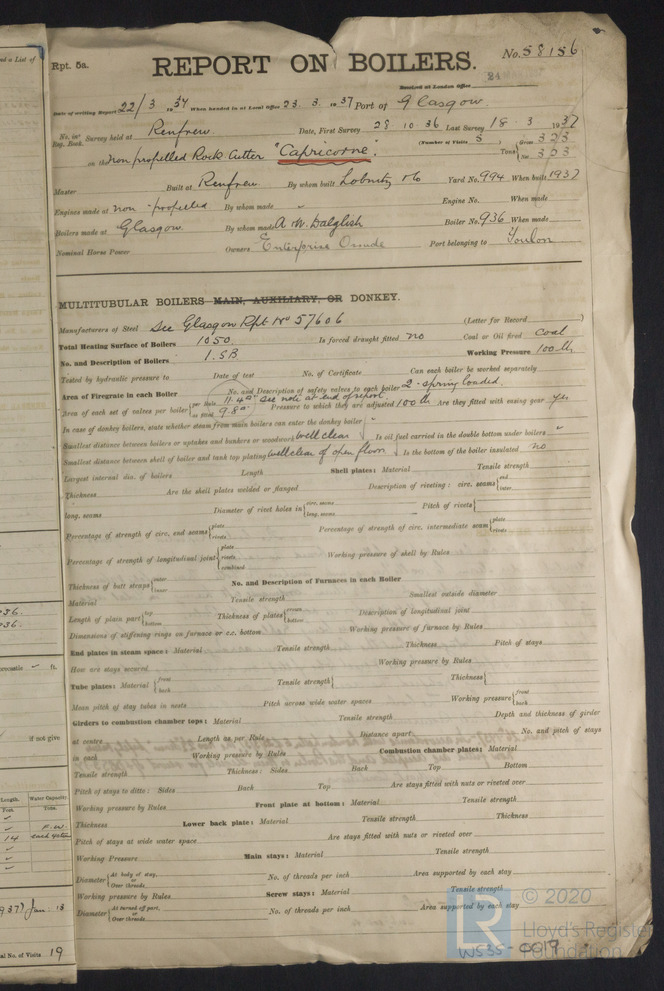 Rpt. 5a.
REPORT ON BOILERS.
No. 58156
Received at London Office
Date of writing Report 22/3 1937 When handed in at Local Office 23. 3. 1937 Port of Glasgow
No. in Reg. Book. Survey held at Renfrew Date, First Survey 28. 10. 36 Last Survey 18. 3 1937
(Number of Visits 5)
on the non propelled Rock Cutter "Capricorne" Tons Gross 323 Net 323
Master Built at Renfrew By whom built Lobnitz & Co Yard No. 994 When built 1937
Engines made at non-propelled By whom made Engine No. When made
Boilers made at Glasgow By whom made A & W. Dalglish Boiler No. 936 When made
Nominal Horse Power Owners Enterprise Port belonging to Toulon
MULTITUBULAR BOILERS MAIN, AUXILIARY, OR DONKEY.
Manufacturers of Steel See Glasgow Rpt No 57606 (Letter for Record )
Total Heating Surface of Boilers 1050 Is forced draught fitted no Coal or Oil fired Coal
No. and Description of Boilers 1. SB Working Pressure 100 lb
Tested by hydraulic pressure to Date of test No. of Certificate Can each boiler be worked separately
Area of Firegrate in each Boiler No. and Description of safety valves to each boiler 2 - spring loaded
Area of each set of valves per boiler { per Rule 11.4 see note at end of report. as fitted 9.8 Pressure to which they are adjusted 100 lb Are they fitted with easing gear yes
In case of donkey boilers, state whether steam from main boilers can enter the donkey boiler
Smallest distance between boilers or uptakes and bunkers or woodwork well clear Is oil fuel carried in the double bottom under boilers
Smallest distance between shell of boiler and tank top plating well clear of open floor Is the bottom of the boiler insulated no
Largest internal dia. of boilers Length Shell plates: Material Tensile strength
Thickness Are the shell plates welded or flanged Description of riveting: circ. seams { end inter.
long. seams Diameter of rivet holes in { circ. seams long. seams Pitch of rivets {
Percentage of strength of circ. end seams { plate rivets Percentage of strength of circ. intermediate seam { plate rivets
Percentage of strength of longitudinal joint { plate rivets combined Working pressure of shell by Rules
Thickness of butt straps { outer inner No. and Description of Furnaces in each Boiler
Material Tensile strength Smallest outside diameter
Length of plain part { top bottom Thickness of plates { crown bottom Description of longitudinal joint
Dimensions of stiffening rings on furnace or c.c. bottom Working pressure of furnace by Rules
End plates in steam space: Material Tensile strength Thickness Pitch of stays
How are stays secured Working pressure by Rules
Tube plates: Material { front back Tensile strength { Thickness {
Mean pitch of stay tubes in nests Pitch across wide water spaces Working pressure { front back
Girders to combustion chamber tops: Material Tensile strength Depth and thickness of girder
at centre Length as per Rule Distance apart No. and pitch of stays
in each Working pressure by Rules Combustion chamber plates: Material
Tensile strength Thickness: Sides Back Top Bottom
Pitch of stays to ditto: Sides Back Top Are stays fitted with nuts or riveted over
Working pressure by Rules Front plate at bottom: Material Tensile strength
Thickness Lower back plate: Material Tensile strength Thickness
Pitch of stays at wide water space Are stays fitted with nuts or riveted over
Working Pressure Main stays: Material Tensile strength
Diameter { At body of stay, or Over threads No. of threads per inch Area supported by each stay
Working pressure by Rules Screw stays: Material Tensile strength
Diameter { At turned off part, or Over threads No. of threads per inch Area supported by each stay
LR © 2020
Lloyd's Register
Foundation
WS35-0019
if not give
Length. Water Capacity.
Feet. Tons.
F.W.
14
al No. of Visits 19